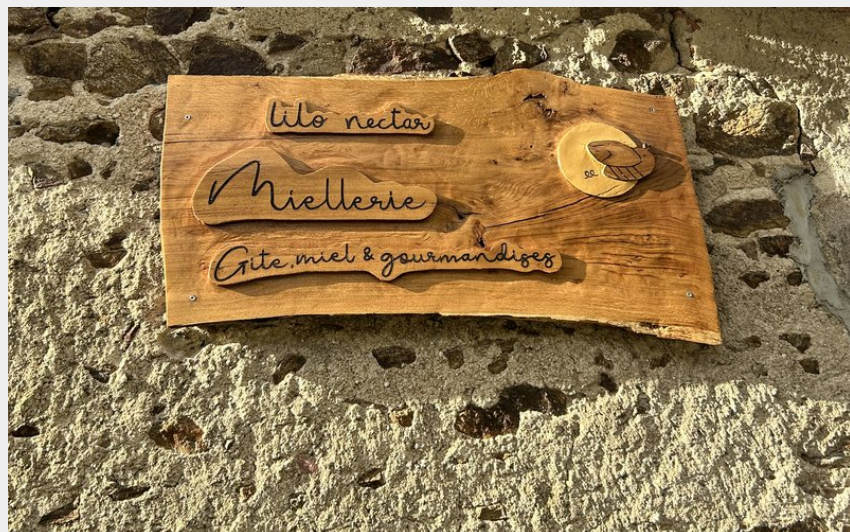 Lilo nectar
Miellerie
Gite, miel & gourmandises